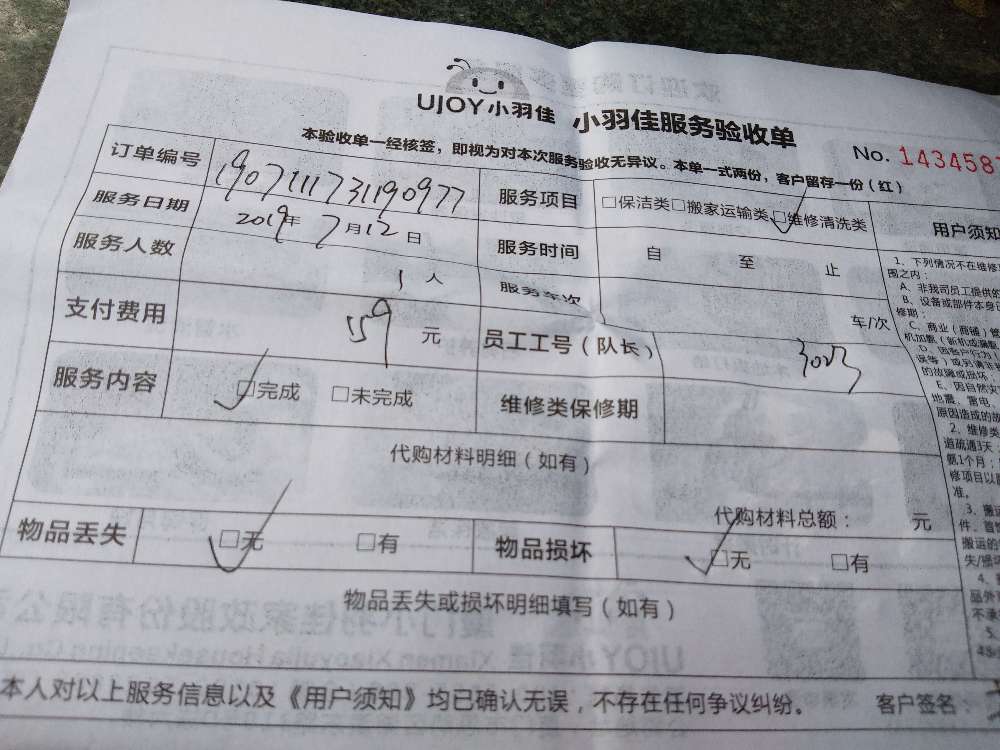 UJOY小羽佳 小羽佳服务验收单
本验收单一经核签，即视为对本次服务验收无异议。本单一式两份，客户留存一份（红）
No. 143458
订单编号 1907111731190977 服务项目 □保洁类□搬家运输类□维修清洗类 用户须知
服务日期 2019年 7月12日 服务时间 自 至 止
服务人数 1人 服务车次 车/次
支付费用 159 元 员工工号（队长）
服务内容 □完成 □未完成 维修类保修期
代购材料明细（如有）
代购材料总额： 元
物品丢失 □无 □有 物品损坏 □无 □有
物品丢失或损坏明细填写（如有）
本人对以上服务信息以及《用户须知》均已确认无误，不存在任何争议纠纷。 客户签名：
1、下列情况不在维修
围之内：
A、非我司员工提供的
B、设备或部件本身
修期：
C、商业（商铺）
的故障或损坏；
E、因自然灾
地震、雷电、
原因造成的故
2、维修类
道疏通3天
氨1个月；
修项目以
准。
3、搬
件、首
搬运的
失/损坏
4、
品外
不承
5、
48